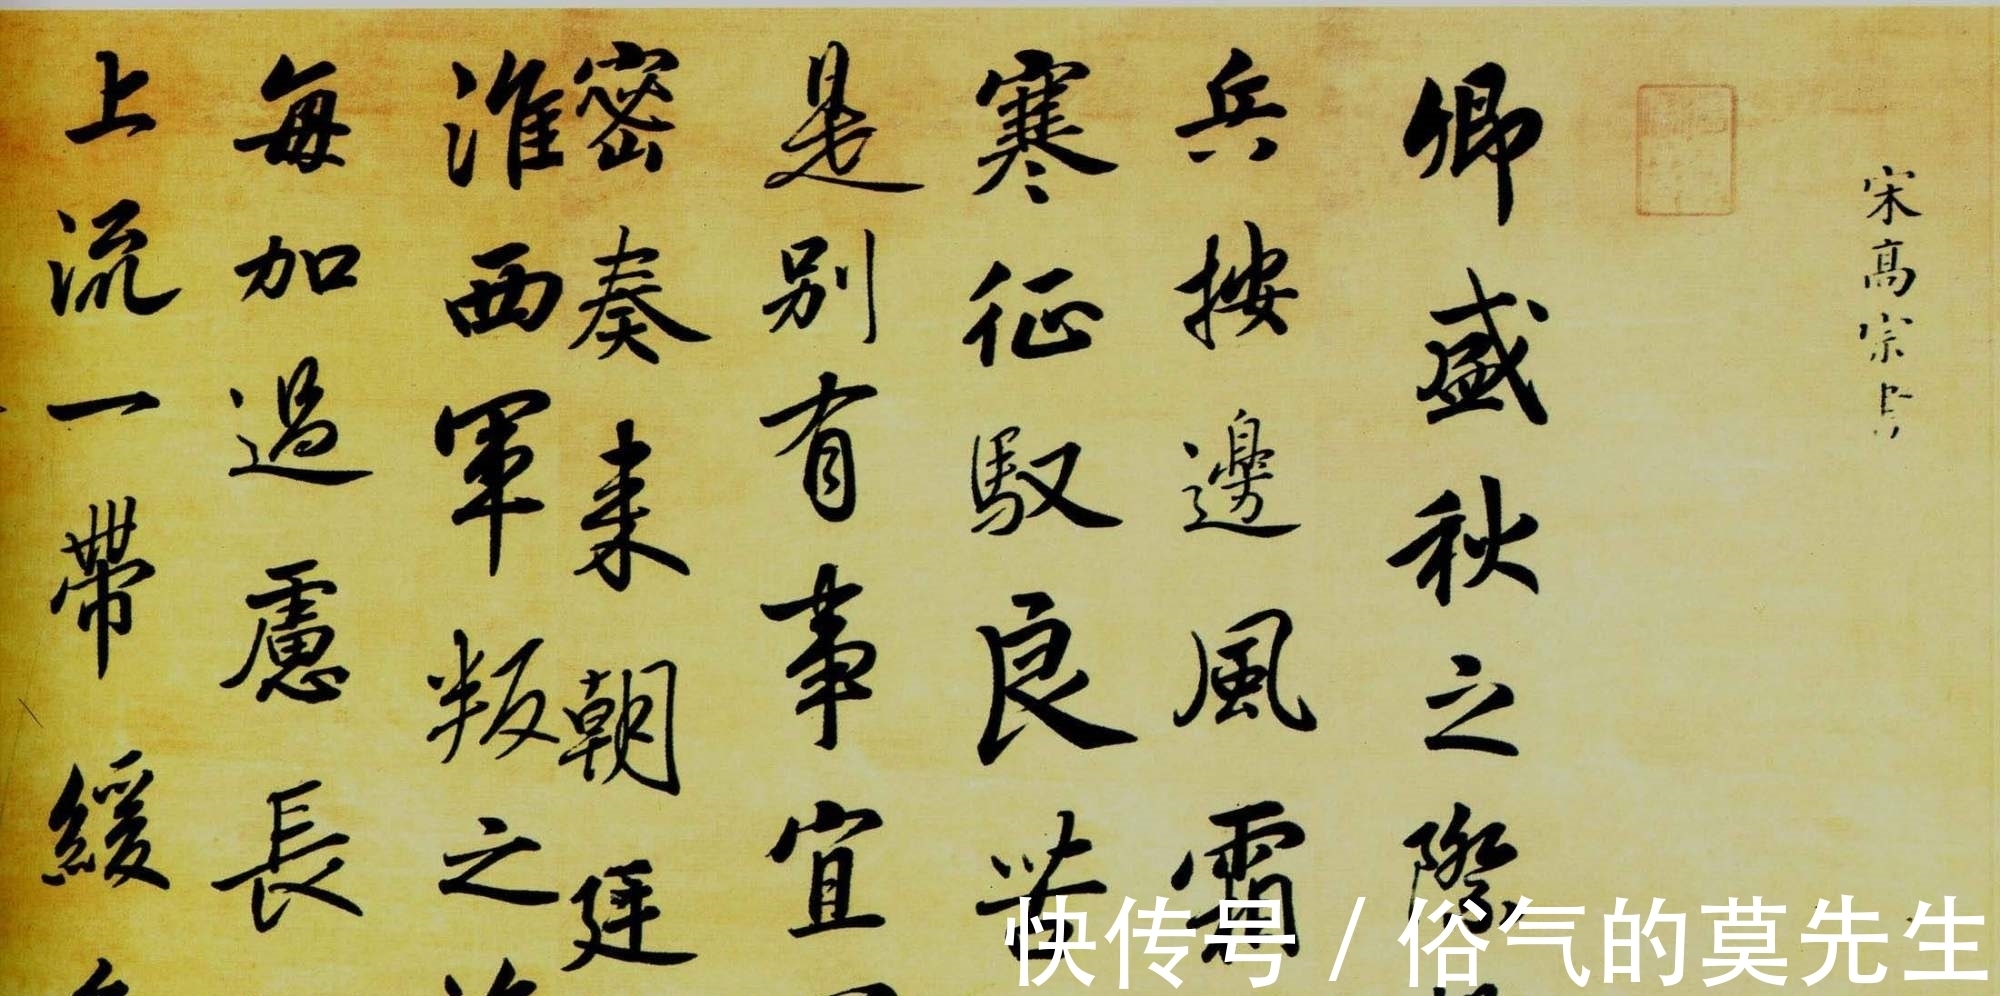 宋高宗書
卿盛秋之際
兵按邊風霜
寒征馭良苦
是別有事宜
密奏来朝廷
淮西軍叛之
每加過慮長
上流一帶緩
快传号/俗气的莫先生